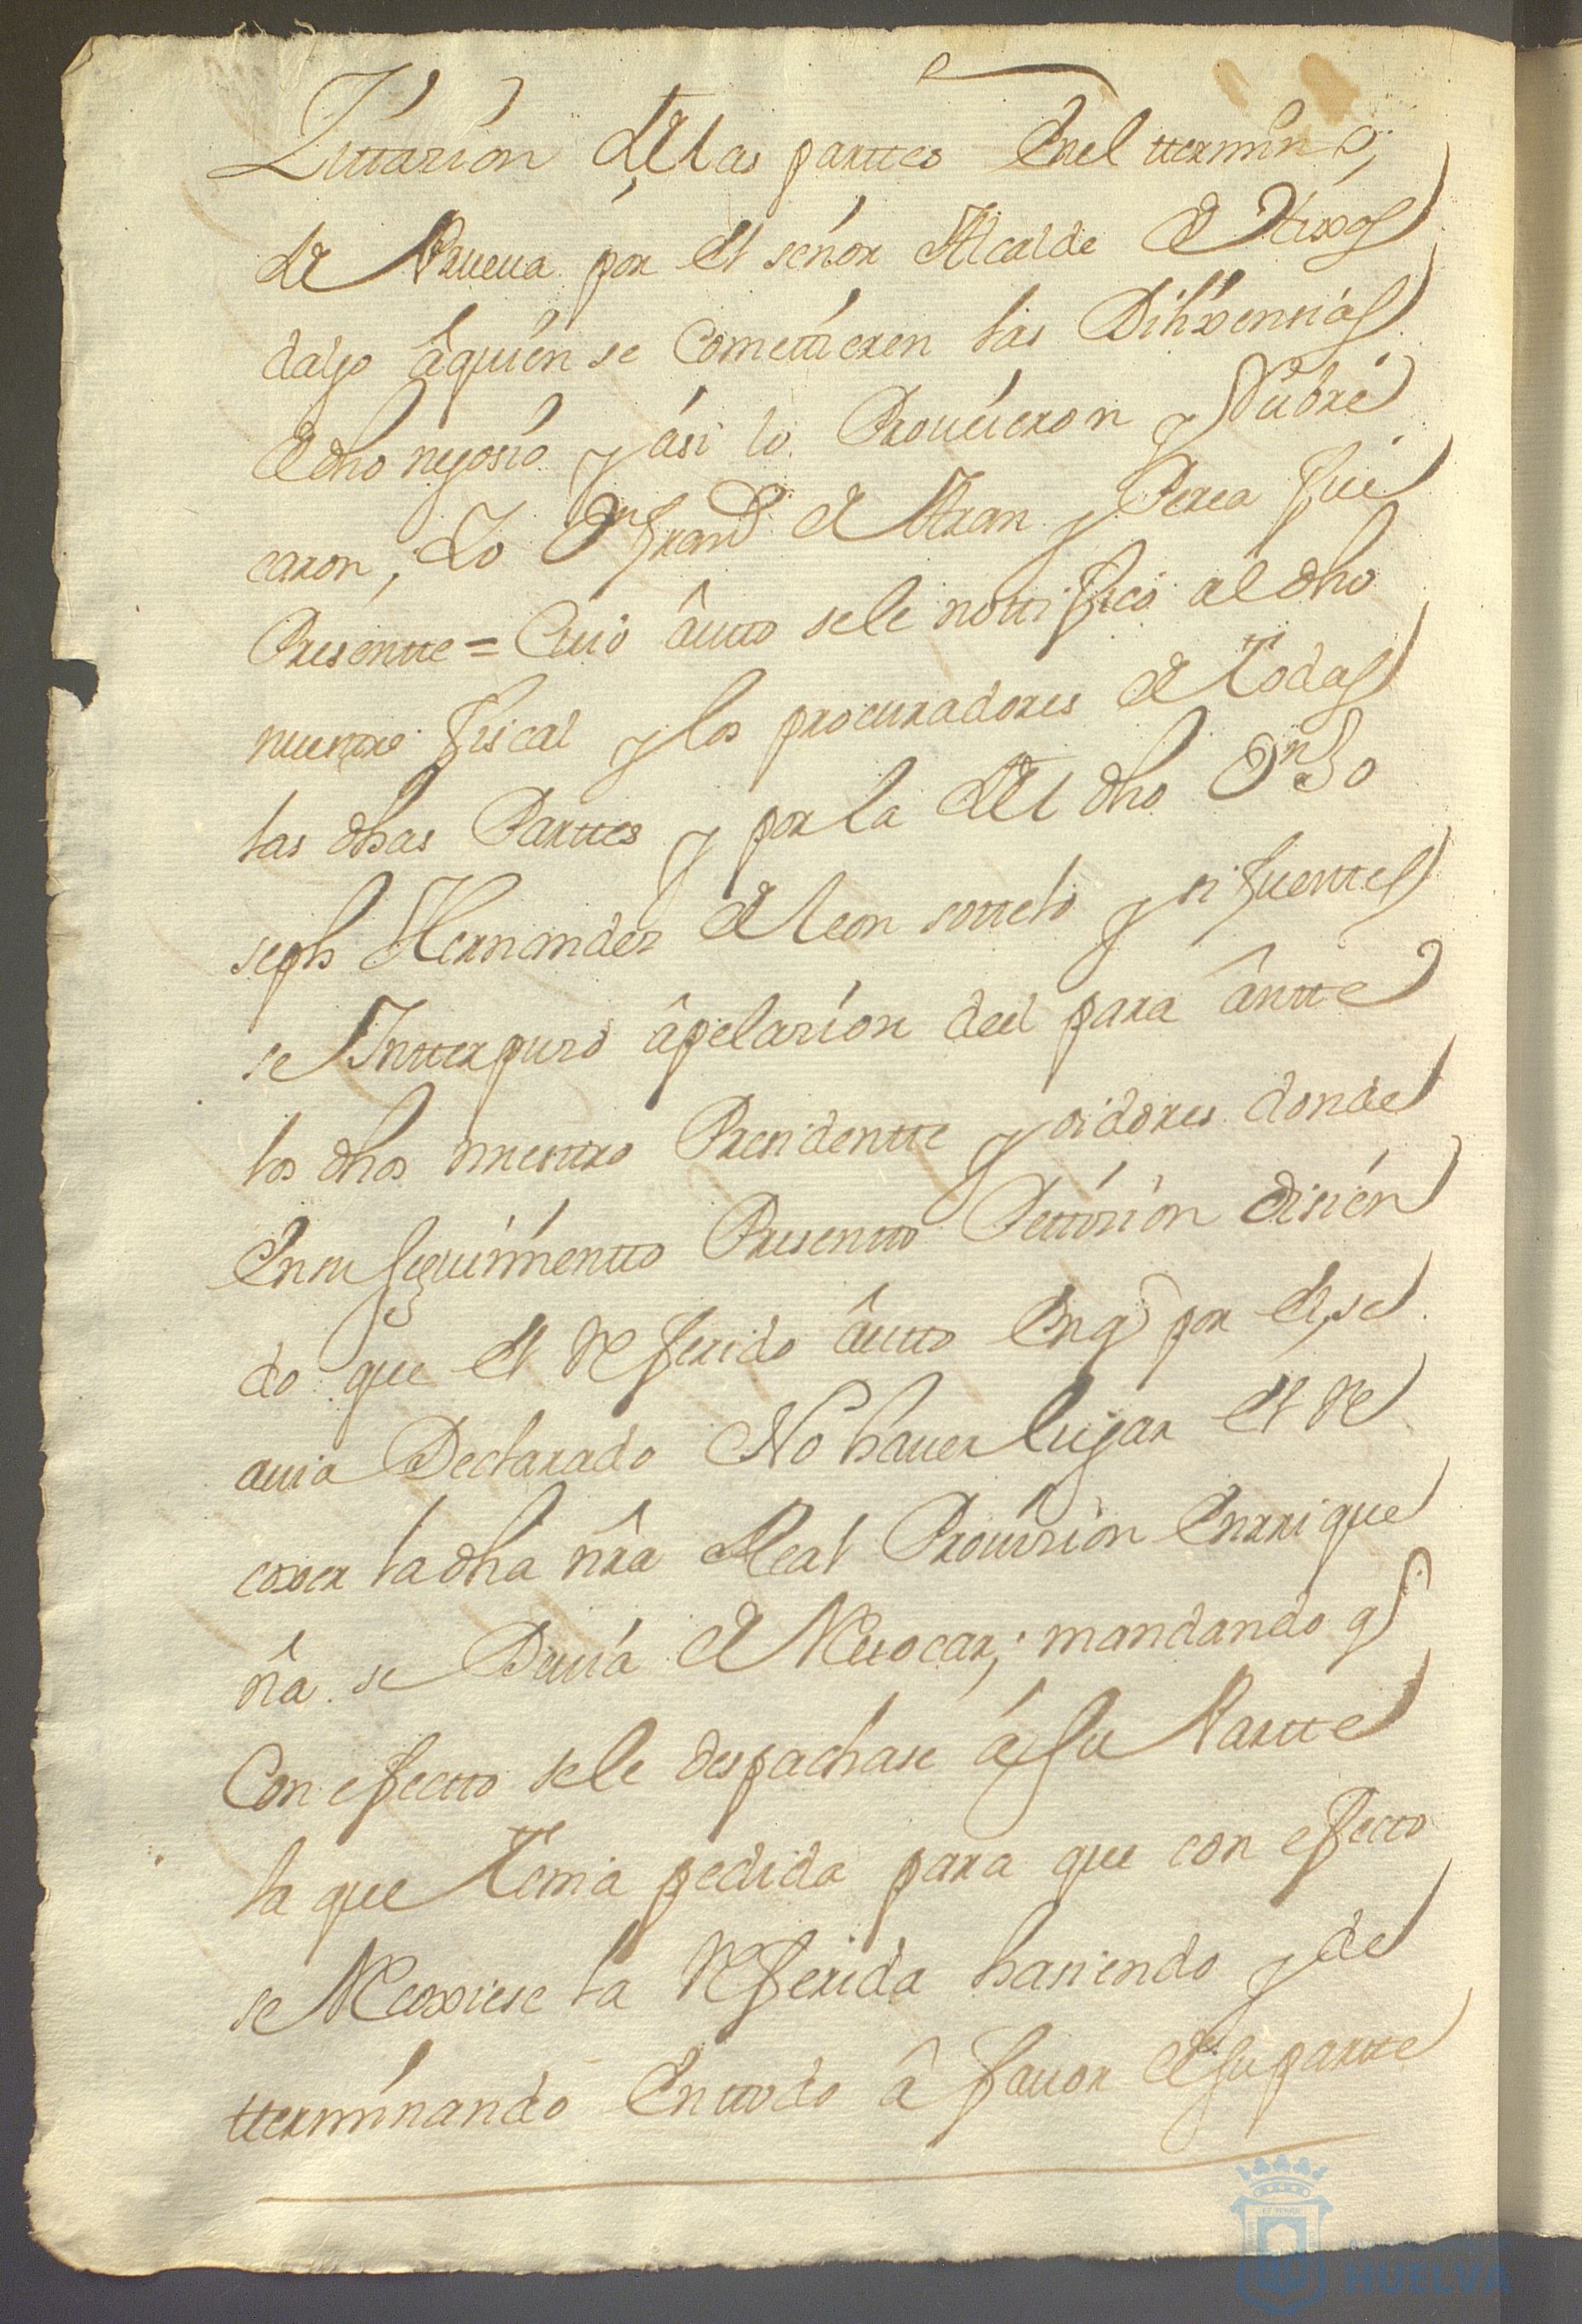 Zittazion de las parttes en el ttermino,
de Prueua por el señor Alcalde de Hixos
dalgo â quien se Comettieren las Dilixensias
de dho negosio y âsi lo Proueieron y Rubri
caron, Lo Dn Frando de Aran y Perea fui
Presentte = Cuio âutto se le nottificó al dho
nuestro fiscal y los procuradores de todas
las dhas Parttes y por la del dho Dn Jo
seph Hernandez de leon sottelo y sifuenttes
se Intterpuso âpelazion de el para ântte
los dhos nuestro Presidentte y oidores donde
en su seguimientto Presentto Pettision disien
do que el Referido âutto en q por el, se
auia Declarado No hauer lugar el Re
coxer la dha nrâ Real Prouision Enrrique
ñâ se Deuia de Reuocar; mandando q
Con efectto se le despachase â su Partte
la que tenia pedida para que con efectto
se Recoxiese la Referida hasiendo y de
tterminando en ttodo â fauor de su partte
HUELVA